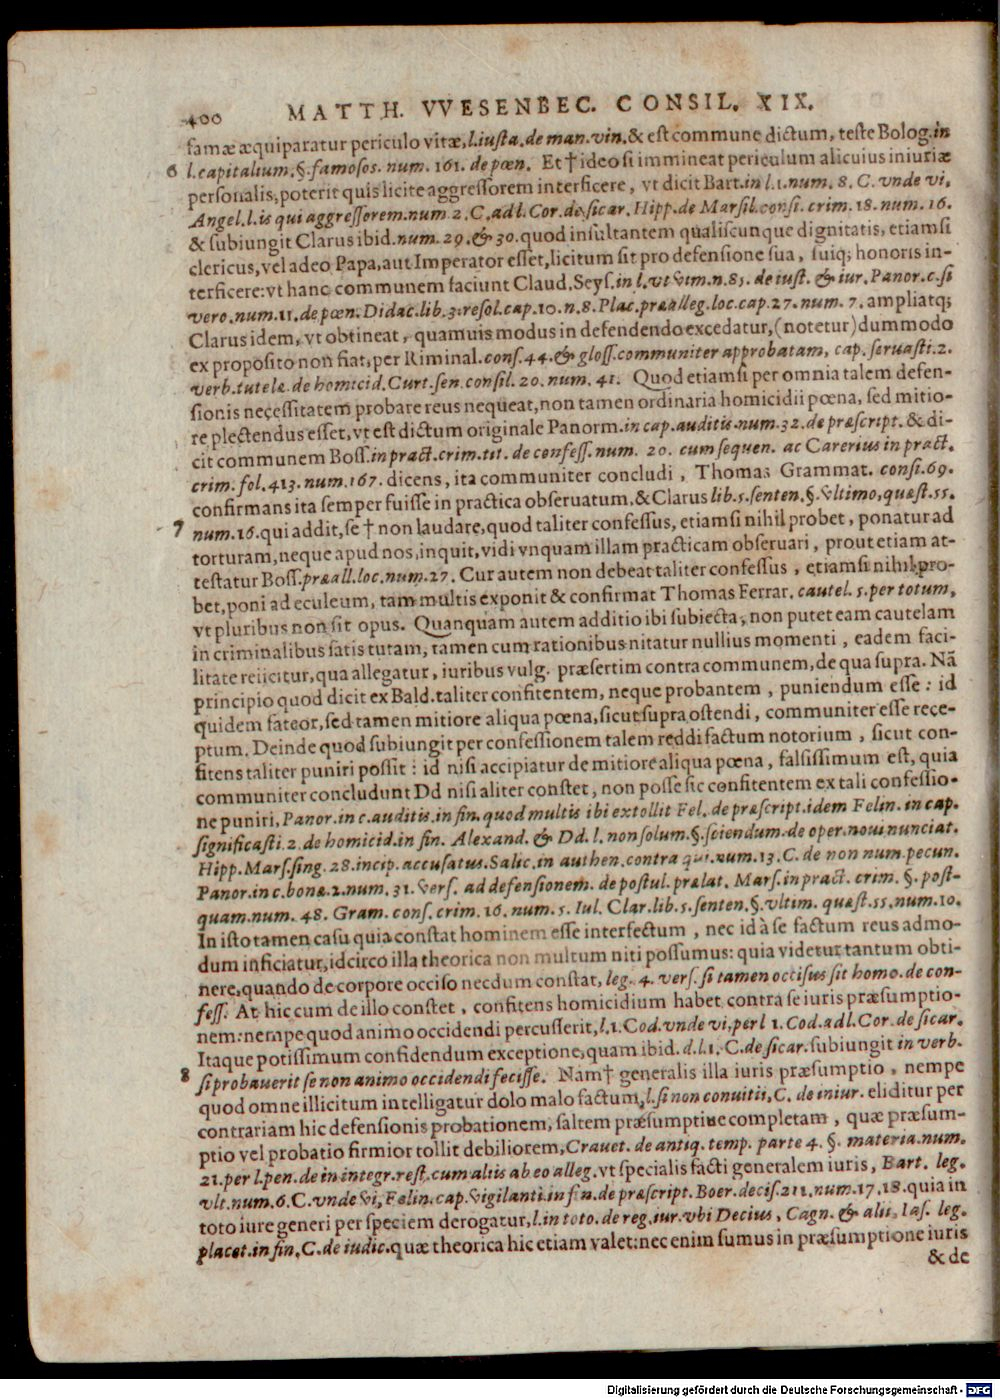 400 MATTH. VVESENBEC. CONSIL. XIX.
famæ æquiparatur periculo vitæ, l. iusta. de man. vin. & est commune dictum, teste Bolog. in
6 l. capitalium. §. famosos. num. 161. de pœn. Et † ideo si immineat periculum alicuius iniuriæ
personalis, poterit quis licite aggressorem interficere, vt dicit Bart. in l. 1. num. 8. C. vnde vi,
Angel. l. is qui aggressorem. num 2. C. ad l. Cor. de sicar. Hipp. de Marsil. consi. crim. 18. num. 16.
& subiungit Clarus ibid. num. 29. & 30. quod insultantem qualiscunque dignitatis, etiamsi
clericus, vel adeo Papa, aut Imperator esset, licitum sit pro defensione sua, suiq; honoris in-
terficere: vt hanc communem faciunt Claud. Seys. in l. vt vim. n. 85. de iust. & iur. Panor. c. si
vero. num. 11. de pœn. Didac. lib. 3. resol. cap. 10. n. 8. Plac. præalleg. loc. cap. 27. num. 7. ampliatq;
Clarus idem, vt obtineat, quamuis modus in defendendo excedatur, (notetur) dummodo
ex proposito non fiat, per Riminal. cons. 44. & gloss. communiter approbatam, cap. seruasti. 2.
verb. tutelæ de homicid. Curt. sen. consil. 20. num. 41. Quod etiamsi per omnia talem defen-
sionis necessitatem probare reus nequeat, non tamen ordinaria homicidii pœna, sed mitio-
re plectendus esset, vt est dictum originale Panorm. in cap. auditis. num. 32. de præscript. & di-
cit communem Boss. in pract. crim. tit. de confess. num. 20. cum sequen. ac Carerius in pract.
crim. fol. 413. num. 167. dicens, ita communiter concludi, Thomas Grammat. consi. 69.
confirmans ita semper fuisse in practica obseruatum. & Clarus lib. 5. senten. §. vltimo, quæst. 55.
7 num. 16. qui addit, se † non laudare, quod taliter confessus, etiamsi nihil probet, ponatur ad
torturam, neque apud nos, inquit, vidi vnquam illam practicam obseruari, prout etiam at-
testatur Boss. præall. loc. num. 27. Cur autem non debeat taliter confessus, etiamsi nihil pro-
bet, poni ad eculeum, tam multis exponit & confirmat Thomas Ferrar. cautel. 5. per totum,
vt pluribus non sit opus. Quanquam autem additio ibi subiecta, non putet eam cautelam
in criminalibus satis tutam, tamen cum rationibus nitatur nullius momenti, eadem faci-
litate reiicitur, qua allegatur, iuribus vulg. præsertim contra communem, de qua supra. Nã
principio quod dicit ex Bald. taliter confitentem, neque probantem, puniendum esse: id
quidem fateor, sed tamen mitiore aliqua pœna, sicut supra ostendi, communiter esse rece-
ptum. Deinde quod subiungit per confessionem talem reddi factum notorium, sicut con-
fitens taliter puniri possit: id nisi accipiatur de mitiore aliqua pœna, falsissimum est, quia
communiter concludunt Dd nisi aliter constet, non posse sic confitentem ex tali confessio-
ne puniri, Panor. in c. auditis. in fin. quod multis ibi extollit Fel. de præscript. idem Felin. in cap.
significasti. 2. de homicid. in fin. Alexand. & Dd. l. non solum. §. sciendum. de oper. noui nunciat.
Hipp. Mars. sing. 28. incip. accusatus. Salic. in authen. contra qui. num. 13. C. de non num. pecun.
Panor. in c. bonæ. 2. num. 31. vers. ad defensionem. de postul. prælat. Mars. in pract. crim. §. post-
quam. num. 48. Gram. cons. crim. 16. num. 5. Iul. Clar. lib. 5. senten. §. vltim. quæst. 55. num. 10.
In isto tamen casu quia constat hominem esse interfectum, nec id à se factum reus admo-
dum inficiatur, idcirco illa theorica non multum niti possumus: quia videtur tantum obti-
nere, quando de corpore occiso necdum constat, leg. 4. vers. si tamen occisus sit homo. de con-
fess. At hic cum de illo constet, confitens homicidium habet contra se iuris præsumptio-
nem: nempe quod animo occidendi percusserit, l. 1. Cod. vnde vi, per l 1. Cod. ad l. Cor. de sicar.
Itaque potissimum confidendum exceptione, quam ibid. d. l. 1. C. de sicar. subiungit in verb.
8 si probauerit se non animo occidendi fecisse. Nam † generalis illa iuris præsumptio, nempe
quod omne illicitum intelligatur dolo malo factum, l. si non conuitii, C. de iniur. eliditur per
contrariam hic defensionis probationem, saltem præsumptiue completam, quæ præsum-
ptio vel probatio firmior tollit debiliorem, Crauet. de antiq. temp. parte 4. §. materia. num.
21. per l. pen. de in integr. rest. cum aliis ab eo alleg. vt specialis facti generalem iuris, Bart. leg.
vlt. num. 6. C. vnde vi, Felin. cap. vigilanti. in fin. de præscript. Boer. decis. 211. num. 17. 18. quia in
toto iure generi per speciem derogatur, l. in toto. de reg. iur. vbi Decius, Cagn. & alii, Ias. leg.
placet. in fin. C. de iudic. quæ theorica hic etiam valet: nec enim sumus in præsumptione iuris
& de
Digitalisierung gefördert durch die Deutsche Forschungsgemeinschaft - DFG